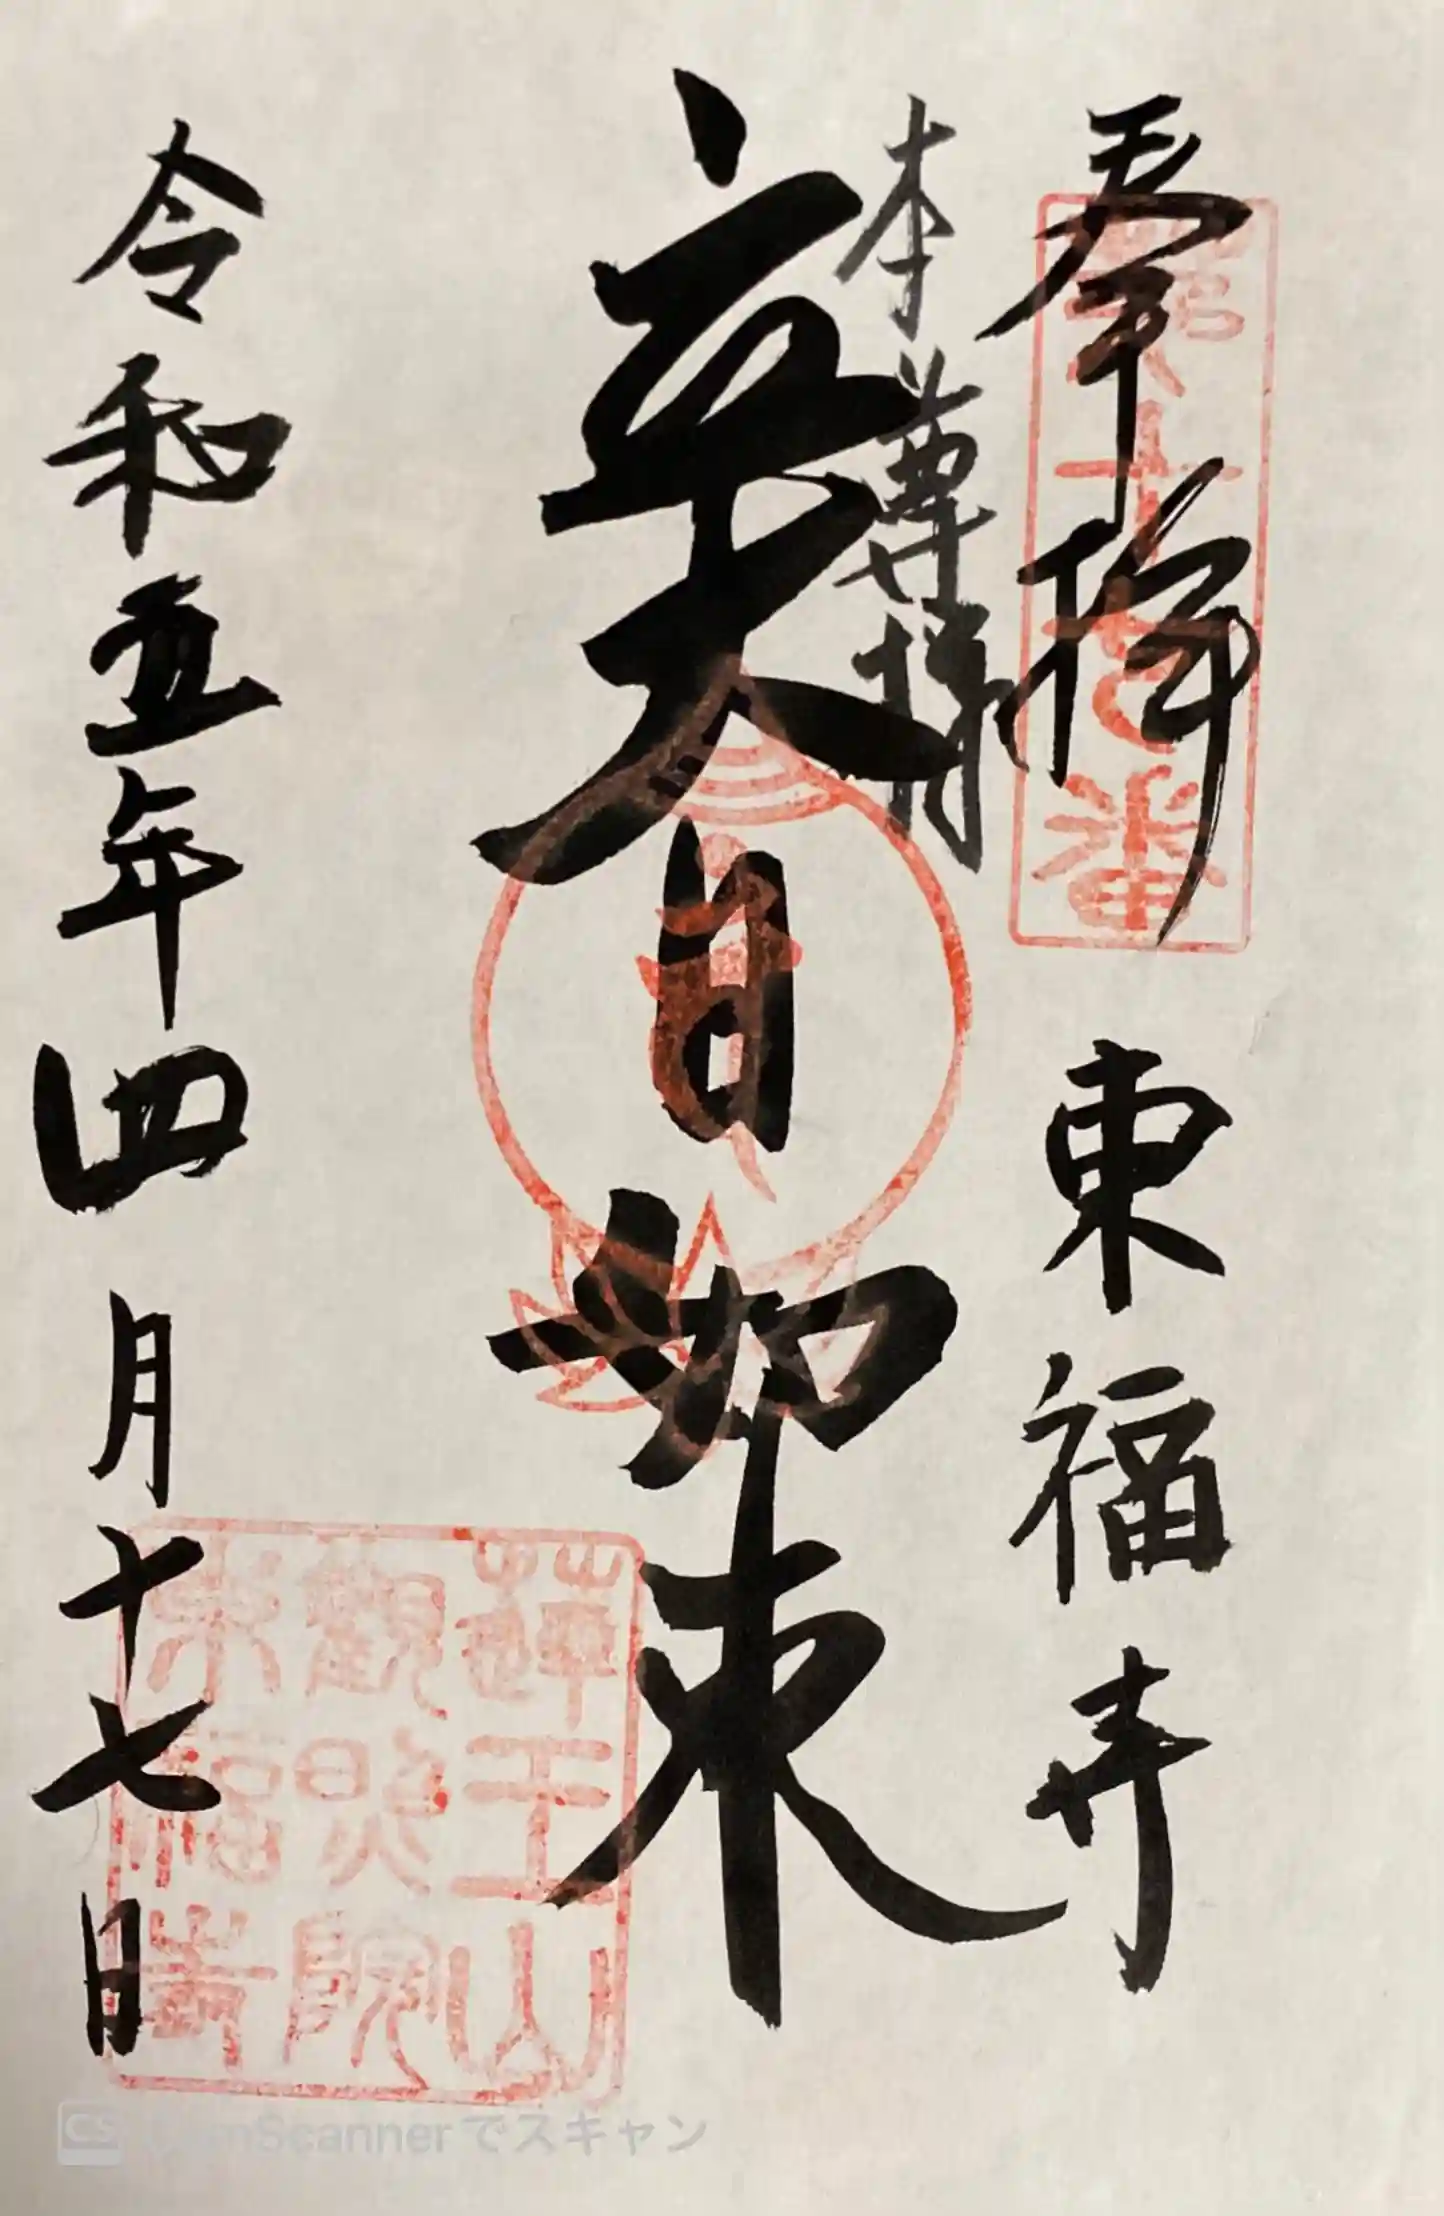 奉拝 東福寺
本尊様
大日如来
令和五年四月十七日
蓮王山
觀照院
東福寺
CS CamScannerでスキャン